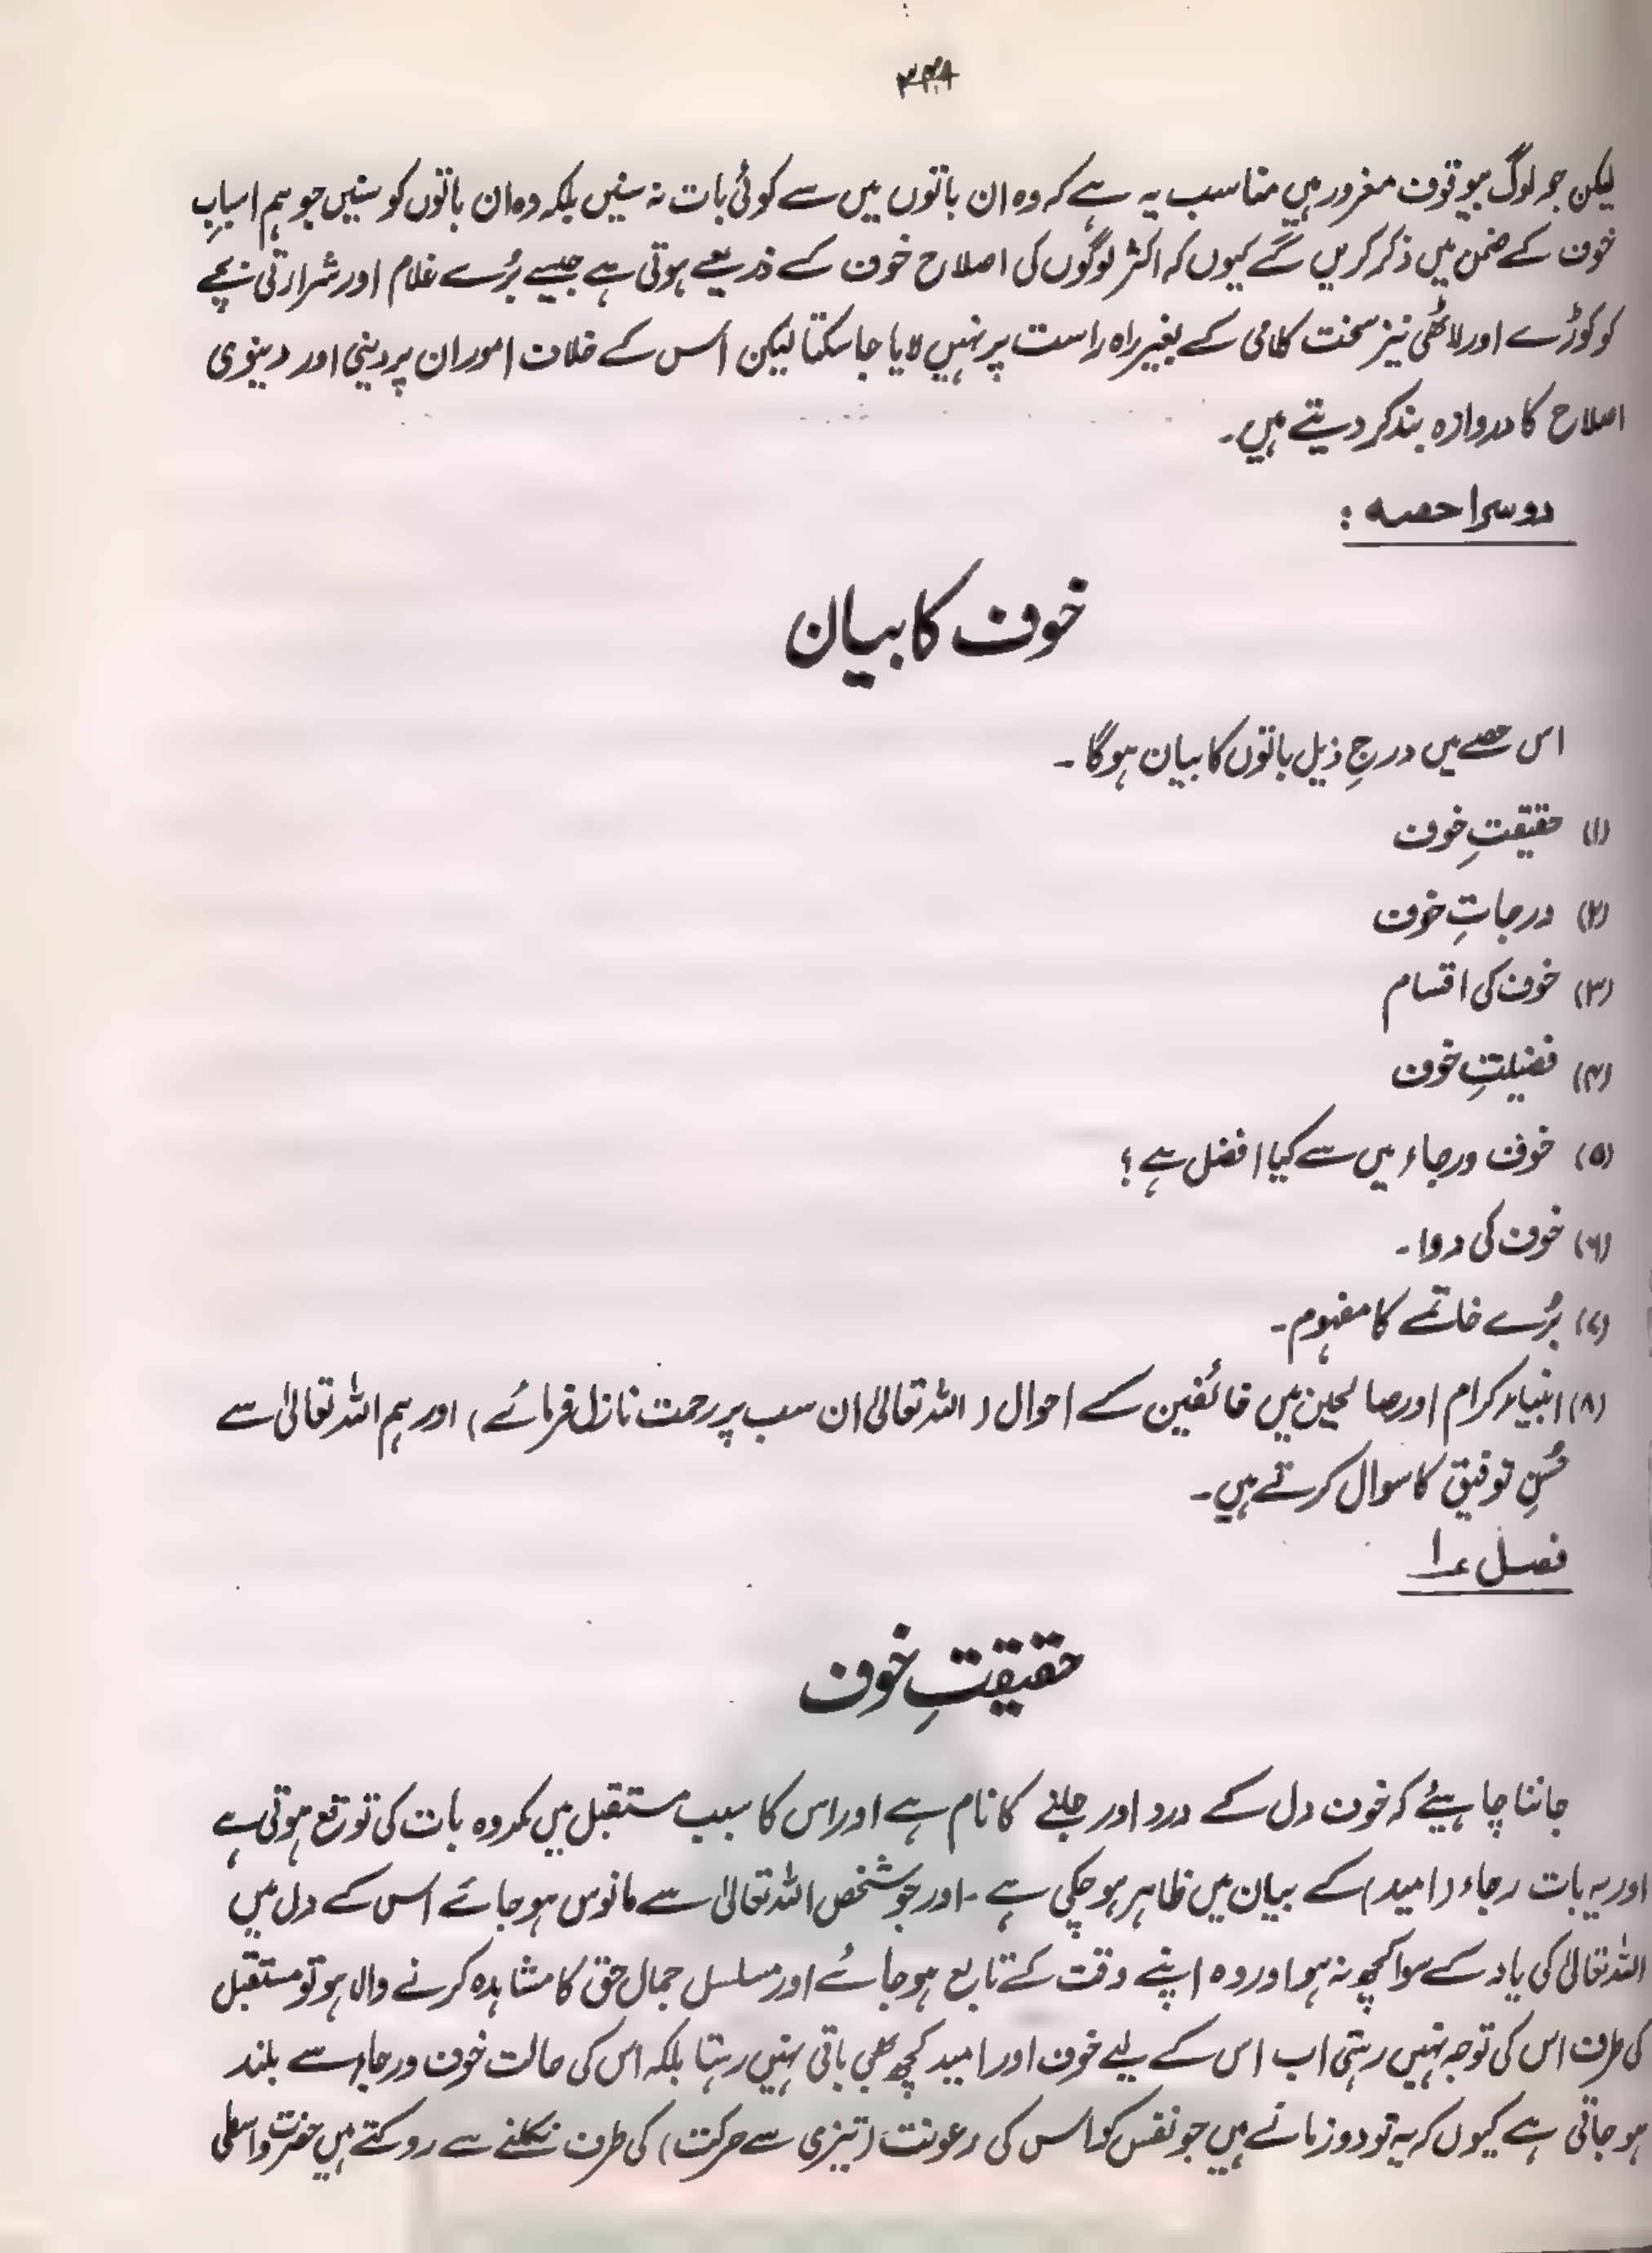 ۳۴۸
لیکن جو لوگ بیوقوف مغرور ہیں مناسب یہ ہے کہ وہ ان باتوں میں سے کوئی بات نہ سنیں بلکہ وہ ان باتوں کو سنیں جو ہم اسبابِ
خوف کے ضمن میں ذکر کریں گے کیوں کہ اکثر لوگوں کی اصلاح خوف کے ذریعے ہوتی ہے جیسے بُرے غلام اور شرارتی بچے
کو کوڑے اور لاٹھی نیز سخت کلامی کے بغیر راہ راست پر نہیں لایا جا سکتا لیکن اس کے خلاف امور ان پر دینی اور دینوی
اصلاح کا دروازہ بند کر دیتے ہیں۔
دوسرا حصہ :
خوف کا بیان
اس حصے میں درجِ ذیل باتوں کا بیان ہوگا ۔
(۱) حقیقتِ خوف
(۲) درجاتِ خوف
(۳) خوف کی اقسام
(۴) فضیلتِ خوف
(۵) خوف و رجاء میں سے کیا افضل ہے ؟
(۶) خوف کی دوا ۔
(۷) بُرے خاتمے کا مفہوم ۔
(۸) انبیاء کرام اور صالحین میں خائفین کے احوال ( اللہ تعالیٰ ان سب پر رحمت نازل فرمائے ) اور ہم اللہ تعالیٰ سے
حُسنِ توفیق کا سوال کرتے ہیں ۔
فصل ۱
حقیقتِ خوف
جاننا چاہیئے کہ خوف دل کے درد اور جلنے کا نام ہے اور اس کا سبب مستقبل میں مکروہ بات کی توقع ہوتی ہے
اور یہ بات رجاء (امید) کے بیان میں ظاہر ہو چکی ہے ۔ اور جو شخص اللہ تعالیٰ سے مانوس ہو جائے اس کے دل میں
اللہ تعالیٰ کی یاد کے سوا کچھ نہ ہو اور وہ اپنے وقت کے تابع ہو جائے اور مسلسل جمال حق کا مشاہدہ کرنے والا ہو تو مستقبل
کی طرف اس کی توجہ نہیں رہتی اب اس کے لیے خوف اور امید کچھ بھی باقی نہیں رہتا بلکہ اس کی حالت خوف و رجاء سے بلند
ہو جاتی ہے کیوں کہ یہ تو دو زمانے ہیں جو نفس کو اس کی رعونت (تیزی سے حرکت) کی طرف نکلنے سے روکتے ہیں حضرت واسطی